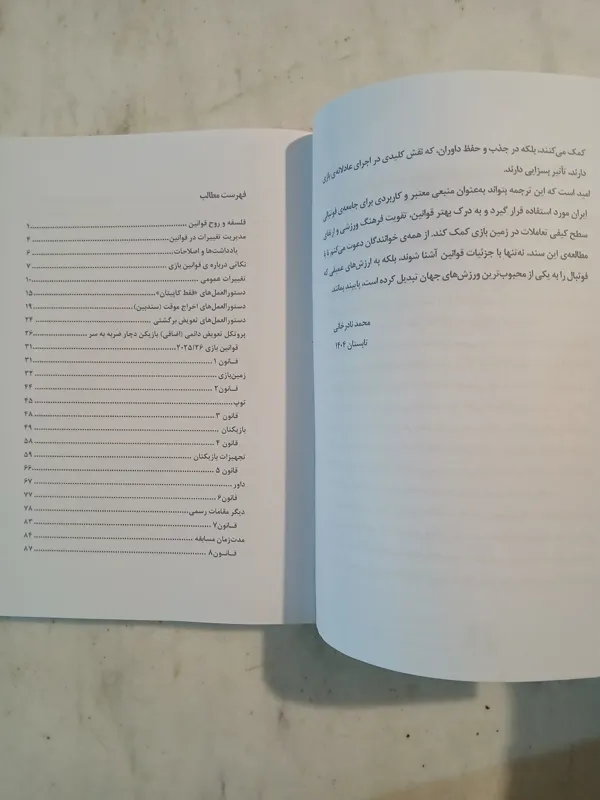 کمک می‌کنند، بلکه در جذب و حفظ داوران، که نقش کلیدی در اجرای عادلانه‌ی بازی
دارند، تأثیر بسزایی دارند.
امید است که این ترجمه بتواند به‌عنوان منبعی معتبر و کاربردی برای جامعه‌ی فوتبالی
ایران مورد استفاده قرار گیرد و به درک بهتر قوانین، تقویت فرهنگ ورزشی و ارتقای
سطح کیفی تعاملات در زمین بازی کمک کند. از همه‌ی خوانندگان دعوت می‌کنم تا با
مطالعه‌ی این سند، نه‌تنها با جزئیات قوانین آشنا شوند، بلکه به ارزش‌های عمیقی که
فوتبال را به یکی از محبوب‌ترین ورزش‌های جهان تبدیل کرده است، پایبند بمانند.
محمد نادرخانی
تابستان ۱۴۰۴
فهرست مطالب
فلسفه و روح قوانین ........ ۱
مدیریت تغییرات در قوانین ........ ۴
یادداشت‌ها و اصلاحات ........ ۶
نکاتی درباره ی قوانین بازی ........ ۷
تغییرات عمومی ........ ۱۰
دستورالعمل‌های «فقط کاپیتان» ........ ۱۵
دستورالعمل‌های اخراج موقت (سندبین) ........ ۱۹
دستورالعمل‌های تعویض برگشتی ........ ۲۴
پروتکل تعویض دائمی (اضافی) بازیکن دچار ضربه به سر ........ ۲۶
قوانین بازی ۲۰۲۵/۲۶ ........ ۳۱
قــانون ۱ ........ ۳۱
زمین‌بازی ........ ۳۴
قــانون۲ ........ ۴۴
توپ ........ ۴۵
قانون ۳ ........ ۴۸
بازیکنان ........ ۴۹
قانون ۴ ........ ۵۸
تجهیزات بازیکنان ........ ۵۹
قانون ۵ ........ ۶۶
داور ........ ۶۷
قانون۶ ........ ۷۷
دیگر مقامات رسمی ........ ۷۸
قــانون۷ ........ ۸۳
مدت‌زمان مسابقه ........ ۸۴
قــانون۸ ........ ۸۷